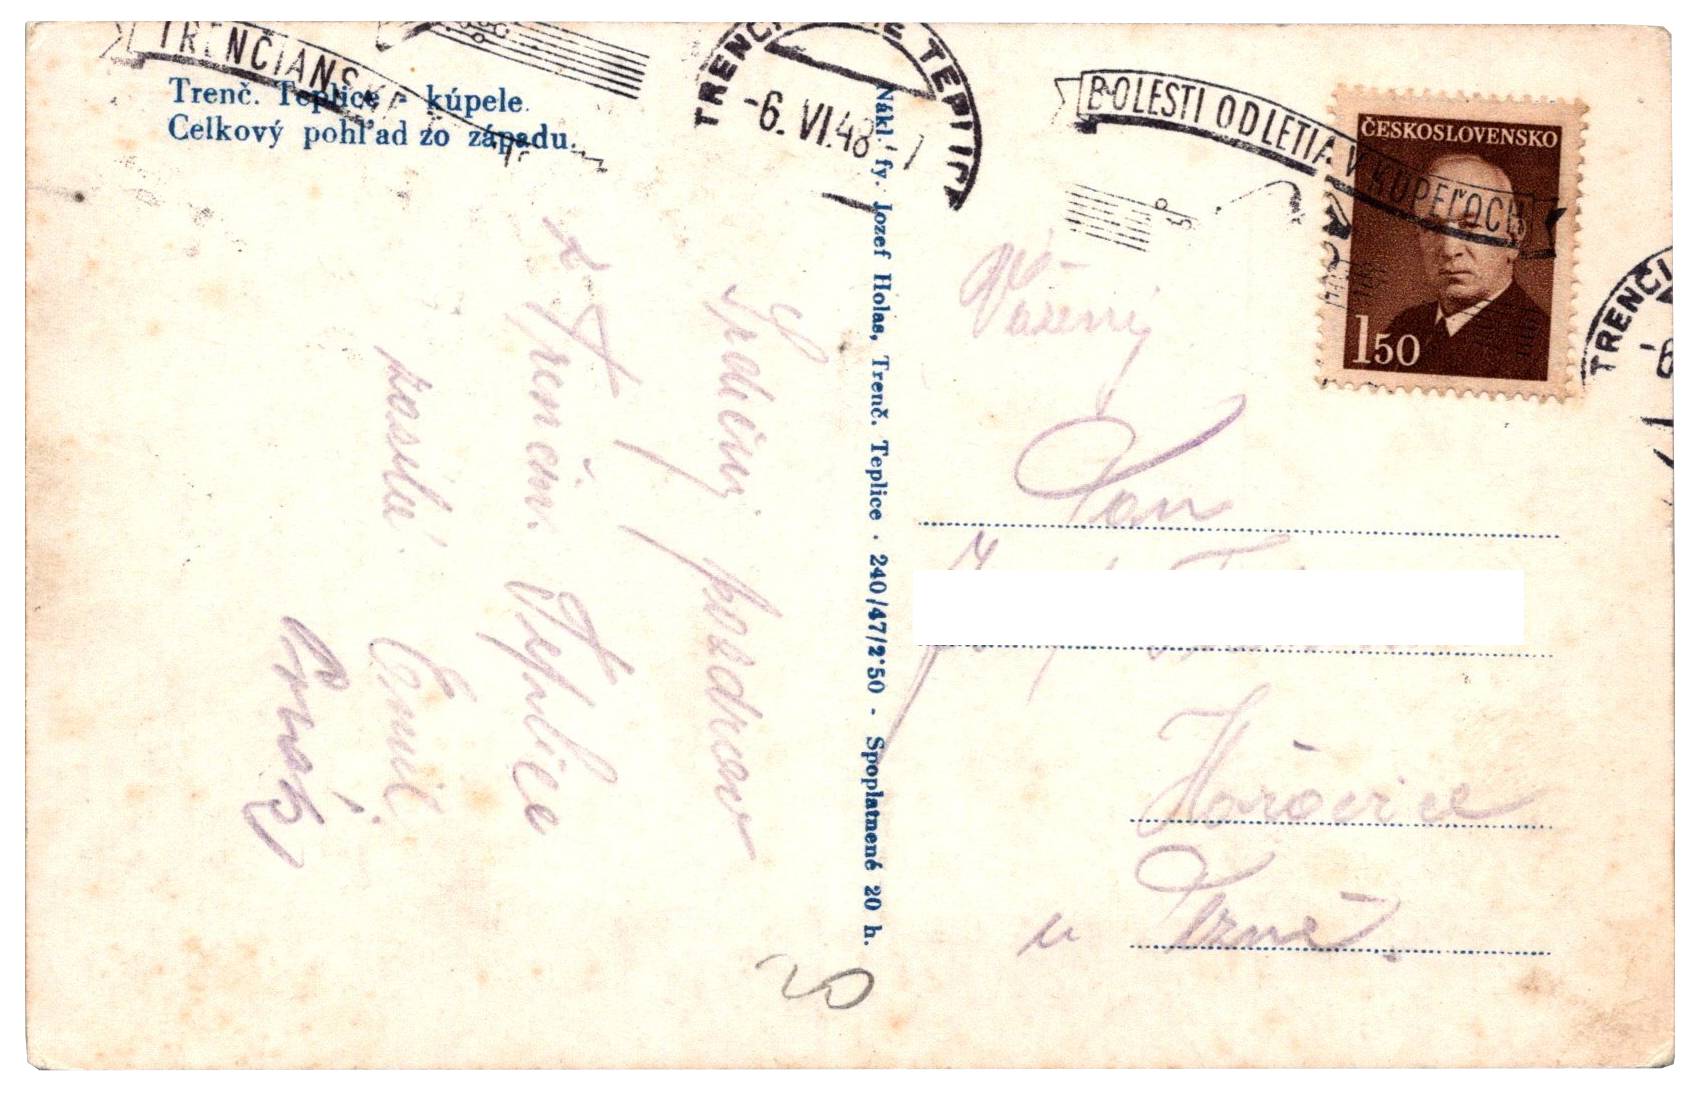 TRENČIANSKE
Trenč. Teplice - kúpele.
Celkový pohľad zo západu.
TRENČIANSKE TEPLICE
-6. VI. 48 -7
BOLESTI ODLETIA V KÚPEĽOCH
ČESKOSLOVENSKO
1 50
TRENČI
-6
Nákl. fy. Jozef Holas, Trenč. Teplice · 240/47/2·50 - Spoplatnené 20 h.
Srdečný pozdrav
z Trenčín. Teplice
zasílá
Emil
Vážený
Pan
Hořovice
u